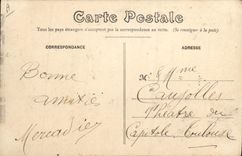 Carte Postale
Tous les pays étrangers n'acceptent pas la correspondance au recto. (Se renseigner à la poste)
CORRESPONDANCE
ADRESSE
Bonne
amitié
Mercadier
Mme
Caujolles
Théâtre du
Capitole Toulouse